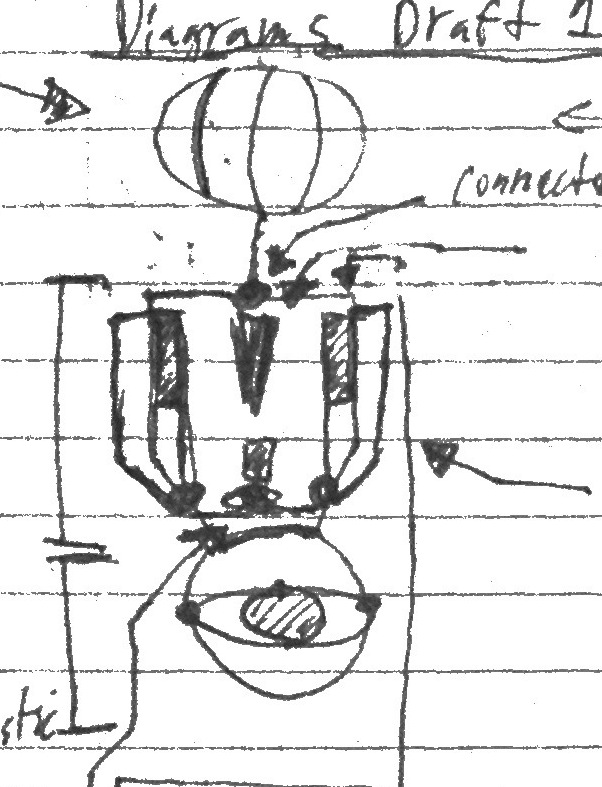 Diagrams Draft 1
connecto
stic